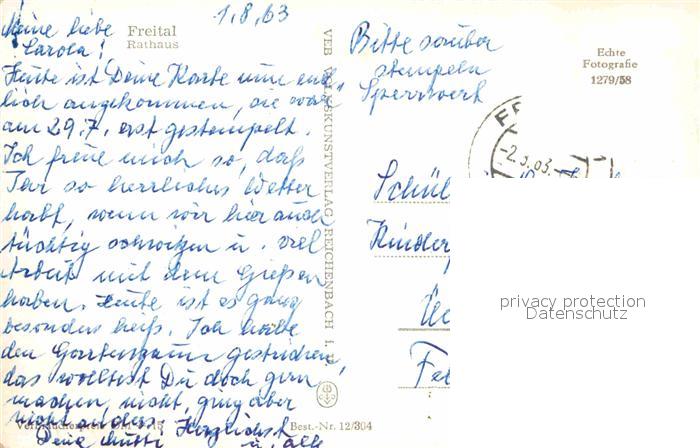 1.8.63
Meine liebe
Carola!
Freital
Rathaus
Heute ist Deine Karte nun end
lich angekommen, sie war
am 29.7. erst gestempelt.
Ich freue mich so, daß
Ihr so herrliches Wetter
habt, wenn wir hier auch
tüchtig schwitzen u. viel
Arbeit mit dem Gießen
haben. Heute ist es ganz
besonders heiß. Ich habe
den Gartenzaun gestrichen,
das wolltest Du doch gern
machen, nicht, ging aber
nicht anders. Herzlichst
Deine Mutti u. alle
VEB VOLKSKUNSTVERLAG REICHENBACH I. V.
Best.-Nr. 12/304
Bitte sauber
stempeln
Sperrwert
Echte
Fotografie
1279/58
Schül
Kinder
Fe
privacy protection
Datenschutz